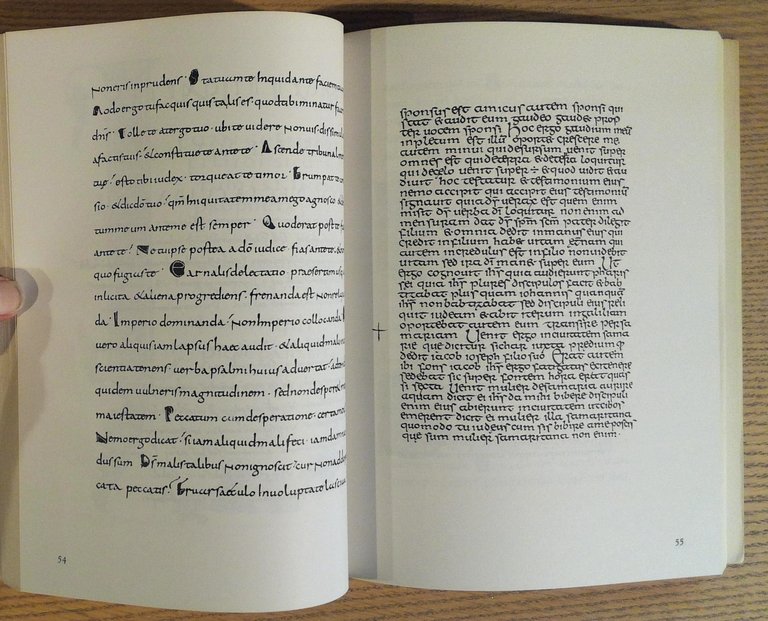 Noneris inprudens · Statuam te Inquid ante faciem
Modo ergo tu facquis quis talis es · quod tabi minatur
dns · Tolle te atergo tuo · ubi te videre non vis · dissim
afactis tuis · & constitue te ante te · Ascende tribunal
tue · esto tibi iudex · torqueat te timor · Erumpat
sio · & dic do tuo · qm Iniquitatem meam ego agnosco &
tum meum ante me est semper · Quod erat post te
ante te · Ne tu ipse postea a do iudice fias ante te · &
quo fugias te · Carnalis delectatio praesertim
inlicita & aliena progrediens · frenanda est Non
da · Imperio dominanda · Non Imperio collocanda
vero aliquis iam lapsus haec audit · & aliquid mali
scientia tenens · verba psalmi huius advertat ·
quidem vulneris magnitudinem · sed non desper
maiestatem · Peccatum cum desperatione · certa
Nemo ergo dicat · si iam aliquid mali feci · iam
dus sum · Ds malis talibus non ignoscit · cur non
cata peccatis · fruor saeculo In voluptate
54
sponsus est amicus autem sponsi qui
stat & audit eum gaudeo gaud& prop
ter vocem sponsi Hoc ergo gaudium meu
inpletum est illu oport& crescere me
autem minui qui desursum venit super
omnes est qui deterra & deterra loquitur
qui de celo venit super & quod vidit & au
divit hoc testatur & testimonium eius
nemo accipit qui accipit eius testimoniu
signavit quia ds verax est quem enim
misit ds verba di loquitur non enim ad
mensuram dat ds spm sem pater dilegit
filium & omnia dedit inmanus eius qui
credit infilium hab& vitam eternam qui
autem incredulus est infilio non videbit
vitam sed ira di man& super eum Ut
ergo cognovit ihs quia audierunt pharis
sei quia ihs plures discipulos facit & bab
tizabat plus quam iohannis quanqua
ihs non babtizabat sed discipuli eius reli
quit iudeam & abiit iterum ingalileam
oportebat autem eum transire per sa
mariam Venit ergo incivitatem sama
rie que dicitur sichar iuxta predium q
dedit iacob ioseph filio suo Erat autem
ibi fons iacob ihs ergo fatigatus exitenere
sedebat sic super fontem hora erat quas
si sexta Venit mulier desamaria aurire
aquam dicit ei ihs da mihi bibere discipuli
enim eius abierunt incivitatem ut cibos
emerent dicit ei mulier illa samaritana
quomodo tu iudeus cum sis bibire ame poscis
que sum mulier samaritana non enim ·
55